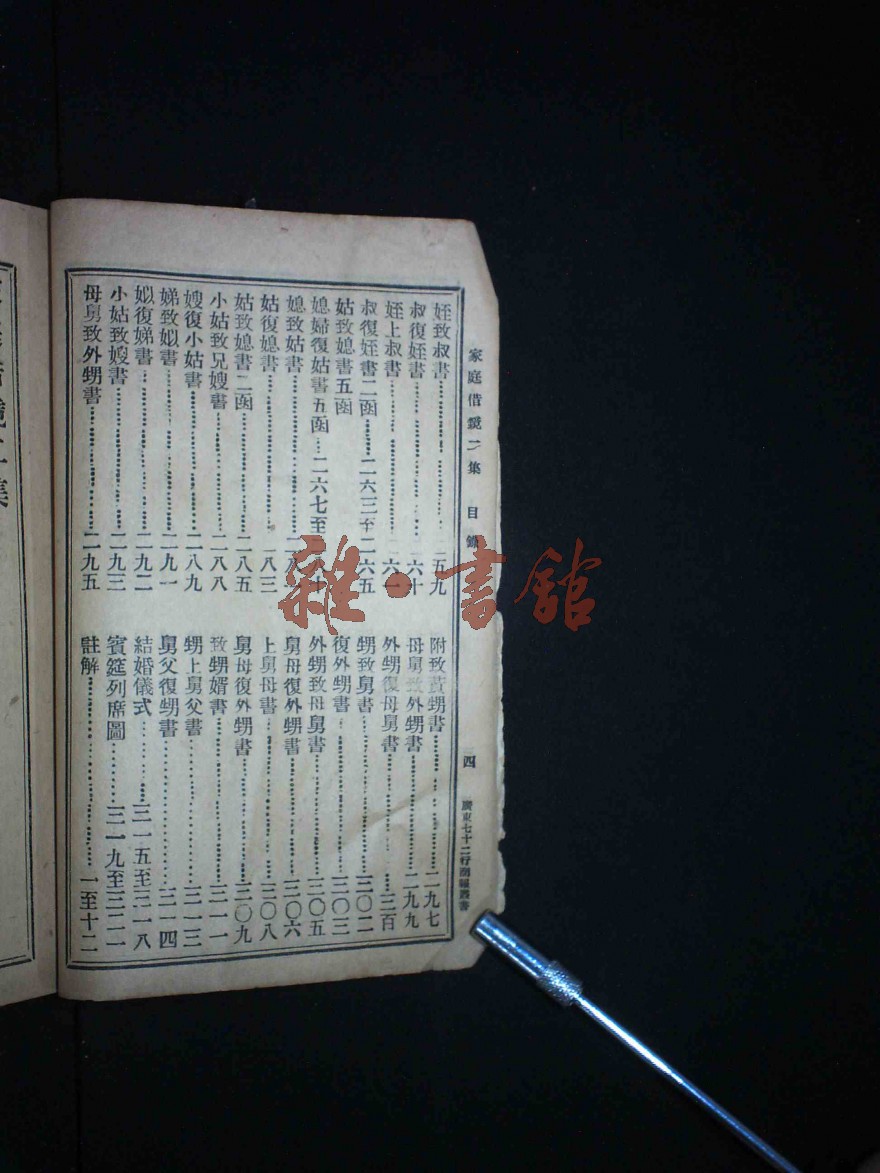 家庭借鏡二集 目錄 四 廣東七十二行商報叢書
姪致叔書 五九
叔復姪書 六十
姪上叔書 六一
叔復姪書二函 二六三至二六五
姑致媳書五函
媳婦復姑書五函 二六七至
媳致姑書
姑復媳書 八三
姑致媳書二函 二八五
小姑致兄嫂書 二八八
嫂復小姑書 二八九
娣致姒書 二九一
姒復娣書 二九二
小姑致嫂書 二九三
母舅致外甥書 二九五
附致黃甥書 二九七
母舅致外甥書 二九九
外甥復母舅書 三百
甥致舅書 三〇二
復外甥書 三〇三
外甥致母舅書 三〇五
舅母復外甥書 三〇六
上舅母書 三〇八
舅母復外甥書 三〇九
致甥婿書 三一一
甥上舅父書 三一三
舅父復甥書 三一四
結婚儀式 三一五至三一八
賓筵列席圖 三一九至三二二
註解 一至十二
雜·書館